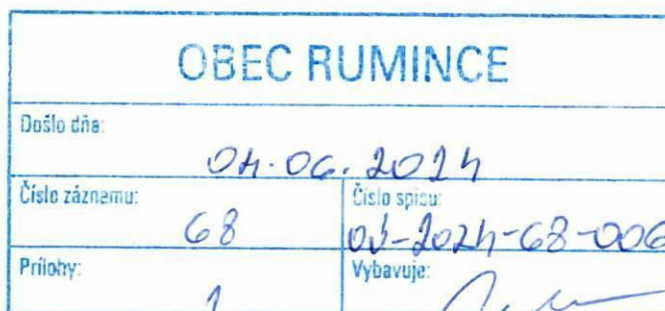 OBEC RUMINCE
Došlo dňa:
04.06.2024
Číslo záznamu:
68
Číslo spisu:
OÚ-2024-68-006
Prílohy:
1
Vybavuje: